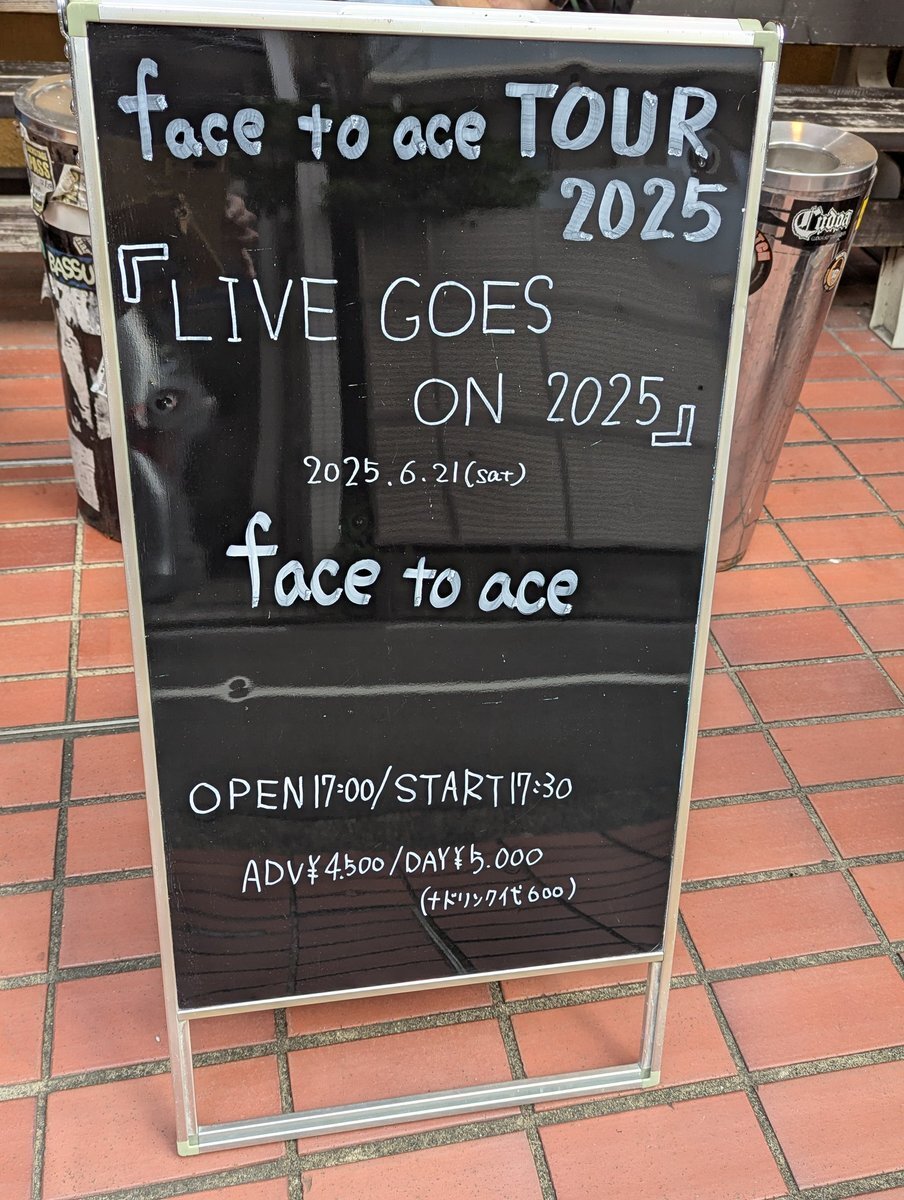 face to ace TOUR
2025
『LIVE GOES
ON 2025』
2025.6.21(sat)
face to ace
OPEN17:00/START17:30
ADV¥4.500/DAY¥5.000
(+ドリンク代600)
BASSU